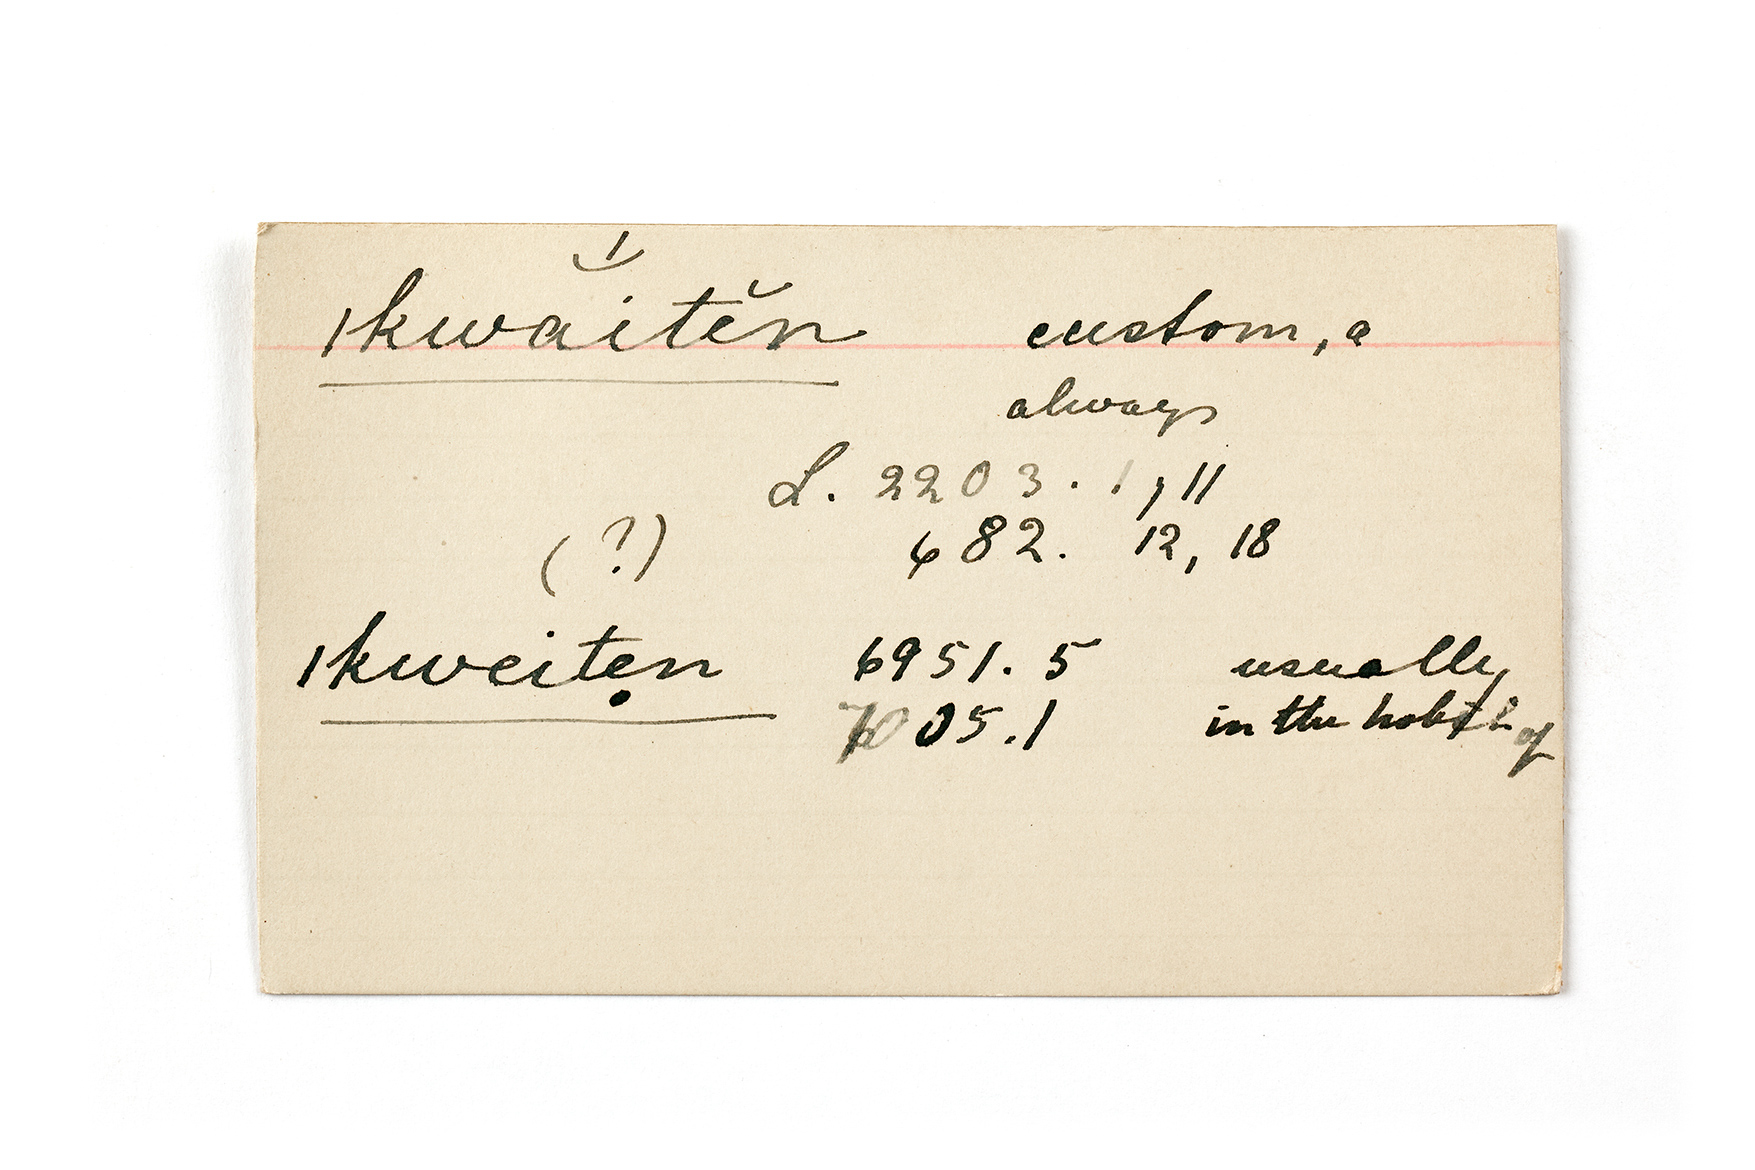 |kwāĭtĕn custom, a
always
L. 2203. 1, 11
(?) 682. 12, 18
|kweitẹn 6951. 5 usually
7005.1 in the habit of